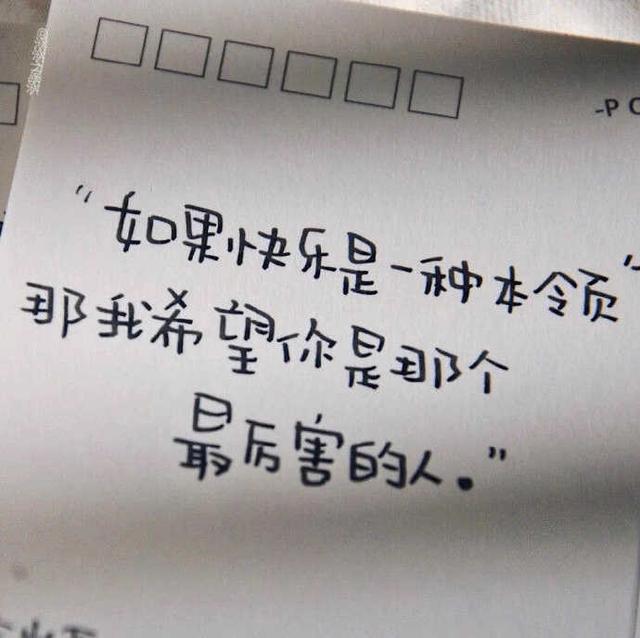 -P
“如果快乐是一种本领，
那我希望你是那个
最厉害的人。”